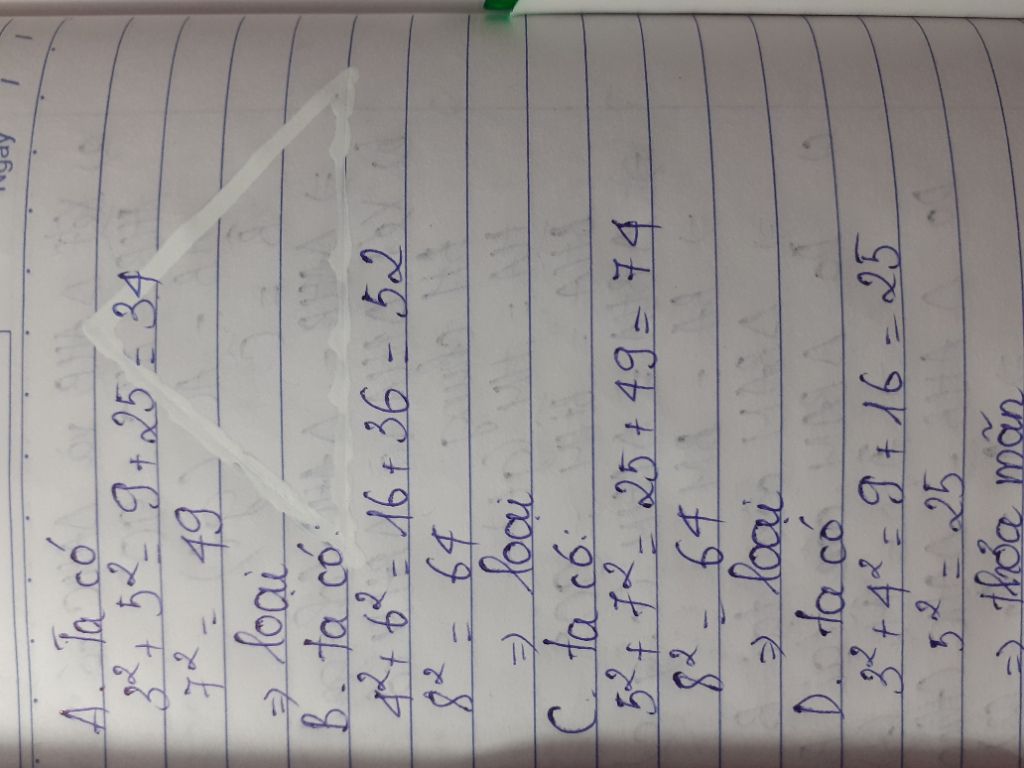 Ngày / /
A. Ta có
3² + 5² = 9 + 25 = 34
7² = 49
⇒ loại
B. Ta có:
4² + 6² = 16 + 36 = 52
8² = 64
⇒ loại
C. Ta có:
5² + 7² = 25 + 49 = 74
8² = 64
⇒ loại
D. Ta có
3² + 4² = 9 + 16 = 25
5² = 25
⇒ thỏa mãn